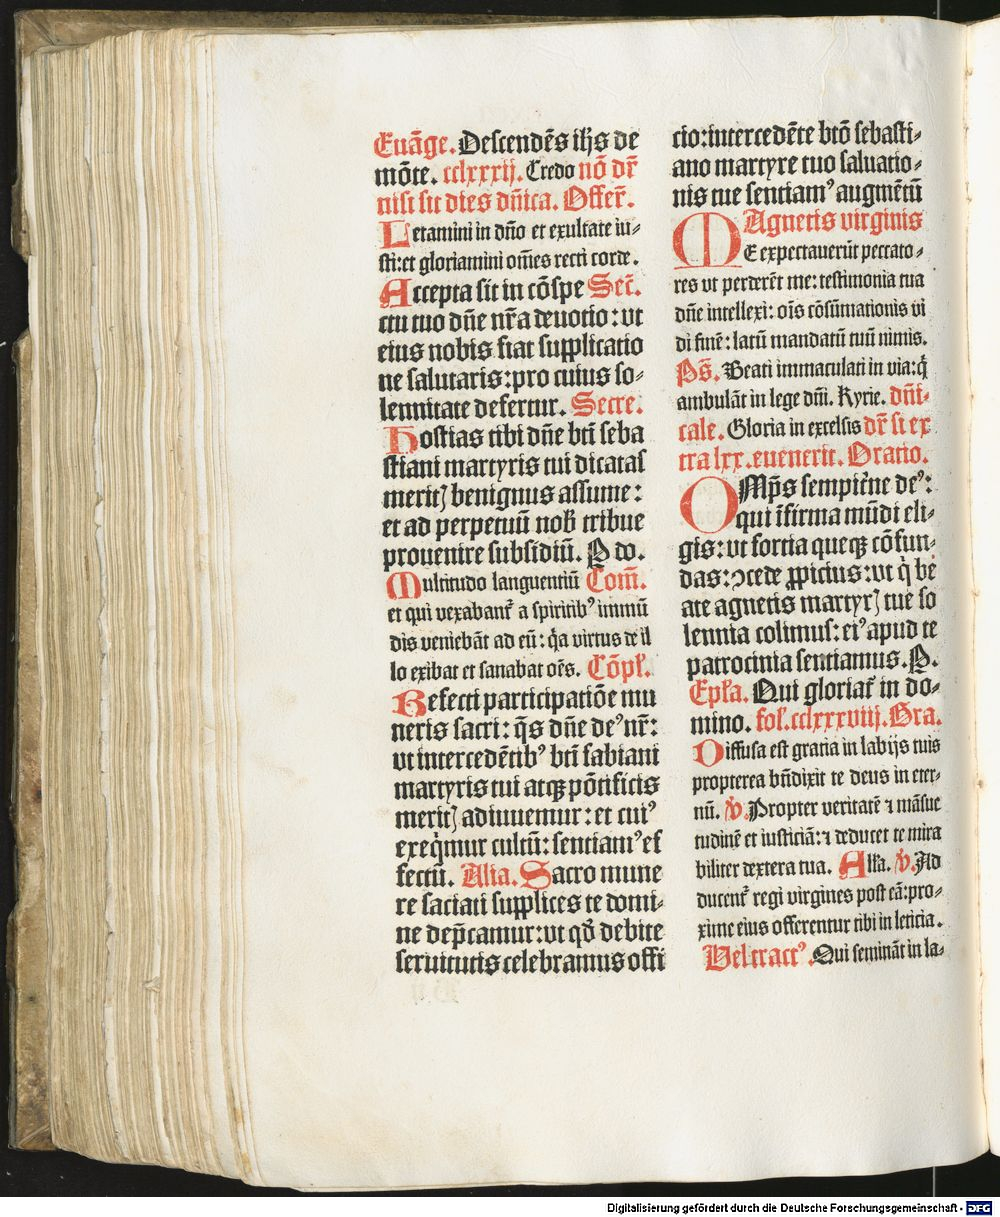 Euāge. Descendēs ihs de
mōte. cclxxxij. Credo nō dr̄
nisi sit dies dn̄ica. Offer̄.
Letamini in dn̄o et exultate iu-
sti: et gloriamini om̄es recti corde.
Accepta sit in cōspe Secr̄.
ctu tuo dn̄e nr̄a deuotio: vt
eius nobis fiat supplicatio
ne salutaris: pro cuius so-
lennitate defertur. Secre.
Hostias tibi dn̄e bt̄i seba
stiani martyris tui dicatas
meritꝭ benignus assume:
et ad perpetuū nob̄ tribue
prouenire subsidiū. P do.
Multitudo languentiū Com̄.
et qui vexabant᷑ a spiritibꝰ immū
dis veniebāt ad eū: q̄a virtus de il
lo exibat et sanabat oēs. Cōpl̄.
Refecti participatiōe mu
neris sacri: q̄s dn̄e deꝰ nr̄:
vt intercedētibꝰ bt̄i fabiani
martyris tui atqꝫ pōtificis
meritꝭ adiuuemur: et cuiꝰ
exeq̄mur cultū: sentiamꝰ ef
fectū. Alia. Sacro mune
re saciati supplices te domi-
ne dep̄camur: vt qd̄ debite
seruitutis celebramus offi
cio: intercedēte btō sebasti-
ano martyre tuo saluatio-
nis tue sentiamꝰ augmētū
Agnetis virginis
ME expectauerūt peccato-
res vt perderēt me: testimonia tua
dn̄e intellexi: oīs cōsūmationis vi
di finē: latū mandatū tuū nimis.
Ps̄. Beati immaculati in via: q̄
ambulāt in lege dn̄i. Kyrie. dn̄i-
cale. Gloria in excelsis dr̄ si ex
tra lxx. euenerit. Oratio.
OMp̄s sempit̄ne deꝰ:
qui īfirma mūdi eli-
gis: vt fortia queqꝫ cōfun-
das: ꝯcede ꝓpicius: vt q̄ be
ate agnetis martyrꝭ tue so
lennia colimus: eiꝰ apud te
patrocinia sentiamus. P.
Epl̄a. Qui gloriat᷑ in do-
mino. fol. cclxxxviij. Gra.
Diffusa est gratia in labijs tuis
propterea bn̄dixit te deus in eter-
nū. ℣. Propter veritatē ⁊ māsue
tudinē et iusticiā: ⁊ deducet te mira
biliter dextera tua. Alla. ℣. Ad
ducent᷑ regi virgines post eā: pro-
xime eius offerentur tibi in leticia.
Vel tractꝰ. Qui semināt in la-
Digitalisierung gefördert durch die Deutsche Forschungsgemeinschaft - DFG